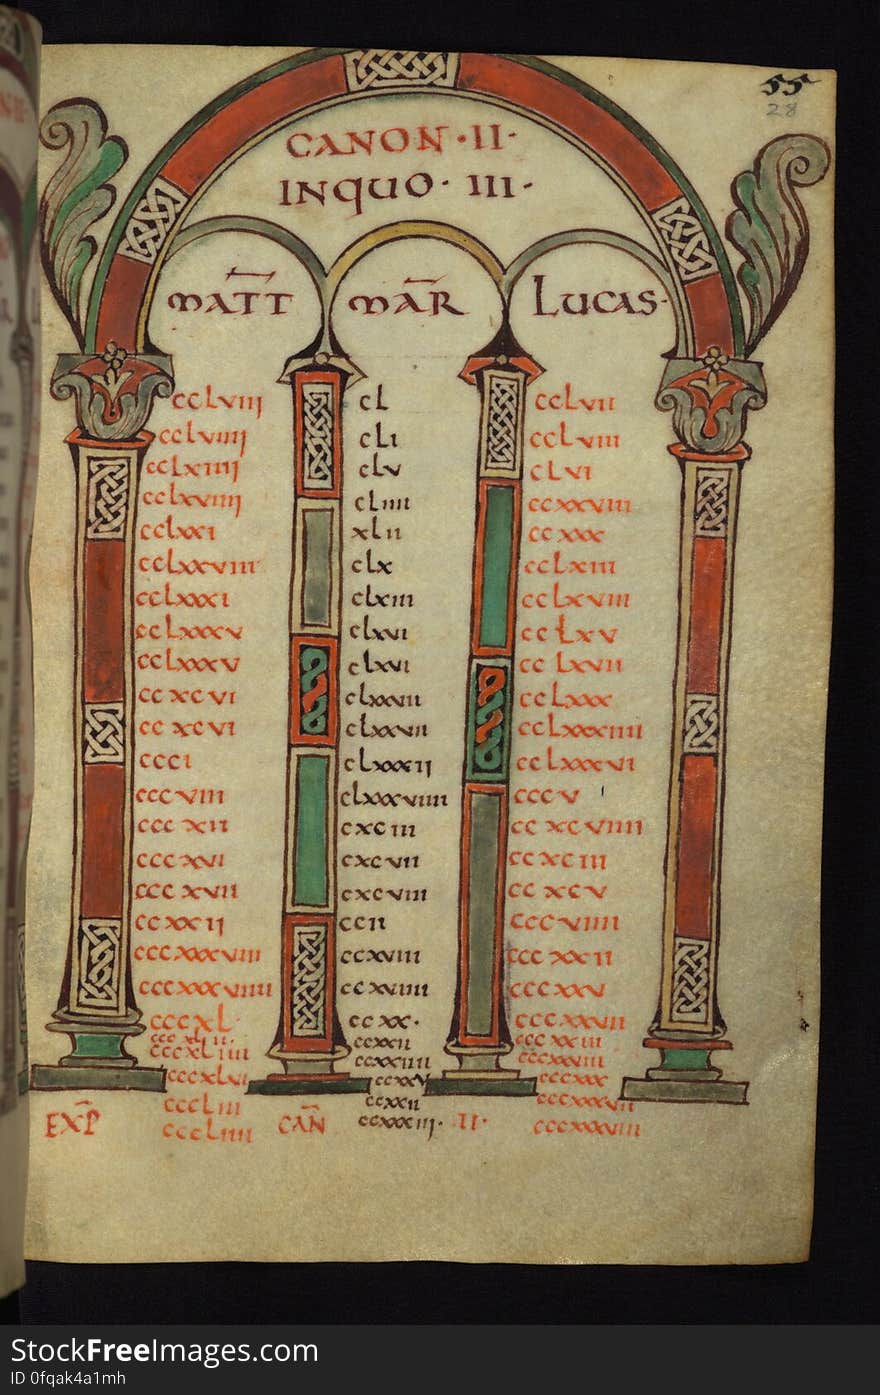 55
28
CANON·II·
INQUO·III·
MATT MAR LUCAS·
ccLviij cL ccLvii
ccLviiij cLi ccLviii
ccLxiiij cLv cLvi
ccLxviiij cLiiii ccxxviii
ccLxxi xLii ccxxx
ccLxxviii cLx ccLxiii
ccLxxxi cLxiii ccLxviii
ccLxxxv cLxvi ccLxv
ccLxxxv cLxvi ccLxvii
ccxcvi cLxxvii ccLxxx
ccxcvi cLxxvii ccLxxxiiii
ccci cLxxxij ccLxxxvi
cccviii cLxxxviiii cccv
cccxii cxciii ccxcviiii
cccxvi cxcvii ccxciii
cccxvii cxcviii ccxcv
ccxxij ccii cccviiii
cccxxxviii ccxviii cccxxii
cccxxxviiii ccxviiii cccxxv
cccxL· ccxx· cccxxvii
cccxLii· ccxxii cccxxiii
cccxLiiii ccxxiiii cccxxviii
cccxLvi ccxxv cccxxx
cccLiii ccxxii cccxxxvii
EXP cccLiiii CAN ccxxxiij· II· cccxxxviii
StockFreeImages.com
ID 0fqak4a1mh